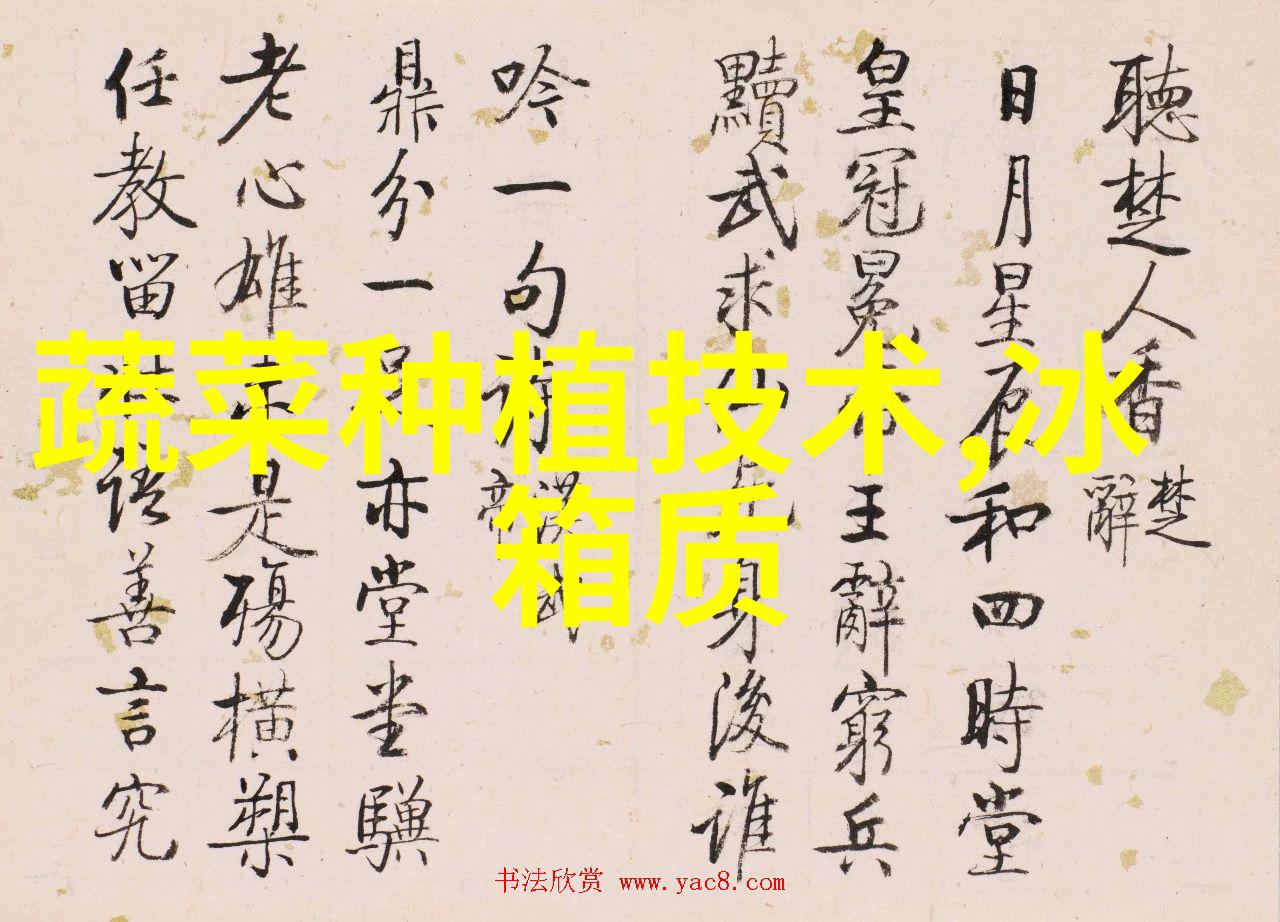 聽楚人香 楚辭
日月星辰和四時堂
皇冠冕王辭窮兵
黷武求身後誰
吟一句詩 漢武帝
鼎分一亦堂堂驥
老心雄是殤橫槊
任教留語善言究
蔬菜种植技术,冰
箱质
书法欣赏 www.yac8.com